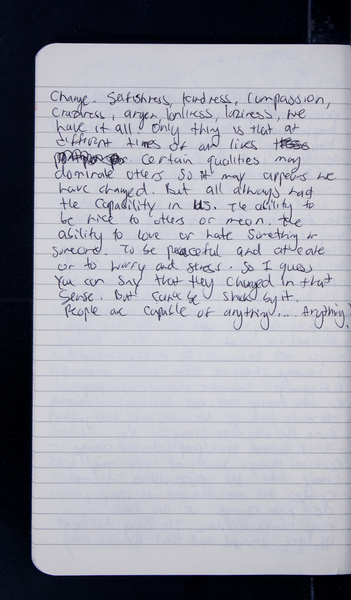 Change. Selfishness, kindness, Compassion,
Craziness, anger, lonliness, laziness, we
have it all. Only thing is that at
different times of our lives
certain qualities may
dominate others so it may appears we
have changed. But all always had
the capability in us. The ability to
be nice to others or mean. The
ability to love or hate something or
someone. To be peaceful and at ease
or to worry and stress. So I guess
you can say that they changed in that
sense. But can't be by it.
People are capable of anything... Anything!